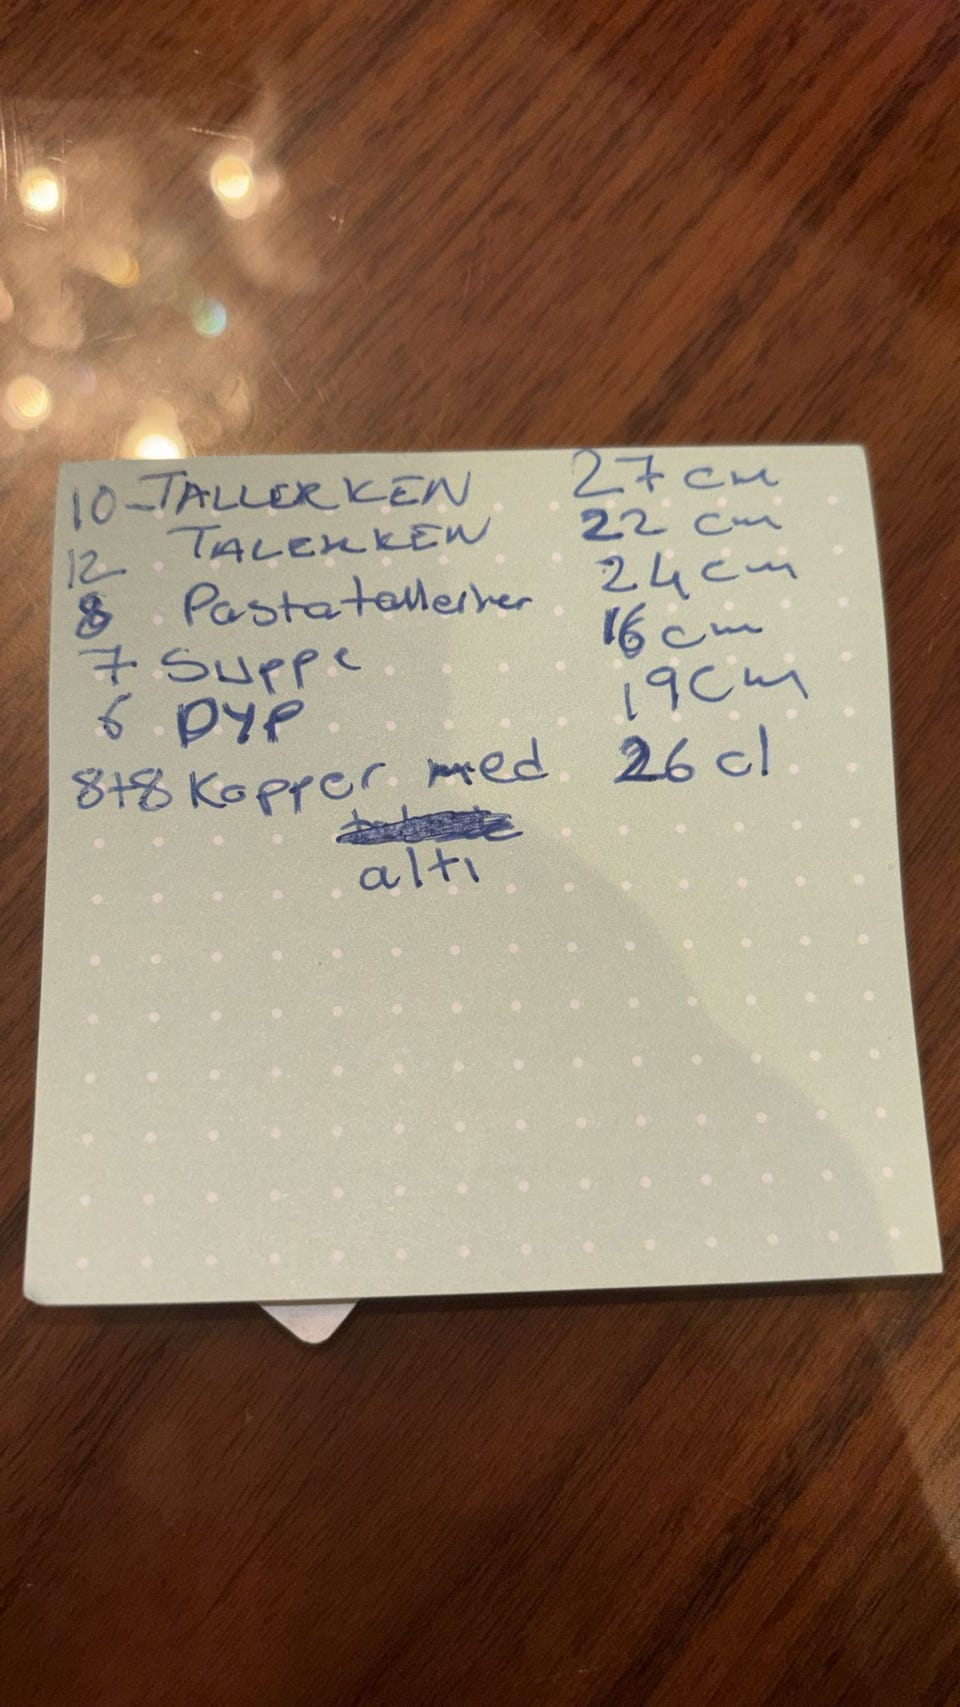 10-TALLERKEN 27 cm
12 TALERKEN 22 cm
8 Pastatallerker 24 cm
7 Suppe 16 cm
6 DYP 19 cm
8+8 Kopper med 26 cl
alti